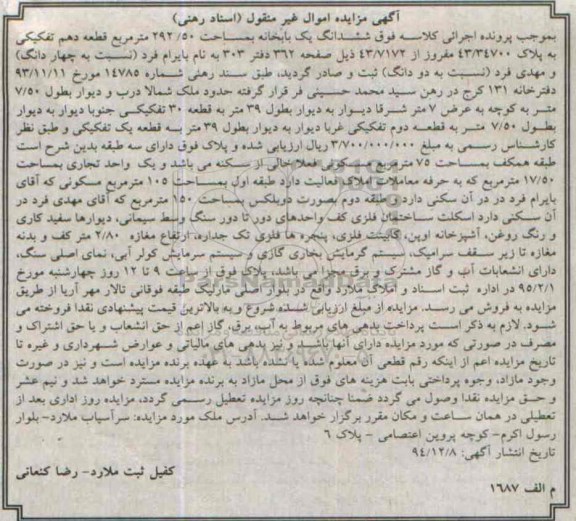 آگهی مزایده اموال غیر منقول (اسناد رهنی)
بموجب پرونده اجرائی کلاسه فوق ششدانگ یک بابخانه بمساحت ۲۹۲/۵۰ مترمربع قطعه دهم تفکیکی
به پلاک ۴۳/۳۴۷۰۰ مفروز از ۴۳/۷۱۷۲ ذیل صفحه ۳۶۲ دفتر ۳۰۳ به نام بایرام فرد (نسبت به چهار دانگ)
و مهدی فرد (نسبت به دو دانگ) ثبت و صادر گردید، طبق سند رهنی شماره ۱۴۷۸۵ مورخ ۹۳/۱۱/۱۱
دفترخانه ۱۳۱ کرج در رهن سید محمد حسینی فر قرار گرفته حدود ملک شمالا درب و دیوار بطول ۷/۵۰
متر به کوچه به عرض ۷ متر شرقا دیوار به دیوار بطول ۳۹ متر به قطعه ۳۰ تفکیکی جنوبا دیوار به دیوار
بطول ۷/۵۰ متر به قطعه دوم تفکیکی غربا دیوار به دیوار بطول ۳۹ متر به قطعه یک تفکیکی و طبق نظر
کارشناس رسمی به مبلغ ۳/۷۰۰/۰۰۰/۰۰۰ ریال ارزیابی شده و پلاک فوق دارای سه طبقه بدین شرح است
طبقه همکف بمساحت ۷۵ مترمربع مسکونی فعلا خالی از سکنه می باشد و یک واحد تجاری بمساحت
۱۷/۵۰ مترمربع که به حرفه معاملات املاک فعالیت دارد طبقه اول بمساحت ۱۰۵ مترمربع مسکونی که آقای
بایرام فرد در در آن سکنی دارد. طبقه دوم بصورت دوبلکس بمساحت ۱۵۰ مترمربع که آقای مهدی فرد در
آن سکنی دارد اسکلت ساختمان فلزی کف واحدهای دور تا دور سنگ وسط سیمانی، دیوارها سفید کاری
و رنگ روغن، آشپزخانه اوپن، کابینت فلزی، پنجره ها فلزی تک جداره، ارتفاع مغازه ۲/۸۰ متر کف و بدنه
مغازه تا زیر سقف سرامیک، سیستم گرمایش بخاری گازی و سیستم سرمایش کولر آبی، نمای اصلی سنگ،
دارای انشعابات آب و گاز مشترک و برق مجزا می باشد، پلاک فوق از ساعت ۹ تا ۱۲ روز چهارشنبه مورخ
۹۵/۲/۱ در اداره ثبت اسناد و املاک ملارد واقع در بلوار اصلی مارلیک طبقه فوقانی تالار مهر آریا از طریق
مزایده به فروش می رسد. مزایده از مبلغ ارزیابی شده شروع و به بالاترین قیمت پیشنهادی نقدا فروخته می
شود. لازم به ذکر است پرداخت بدهی های مربوط به آب، برق، گاز اعم از حق انشعاب و یا حق اشتراک و
مصرف در صورتی که مورد مزایده دارای آنها باشد و نیز بدهی های مالیاتی و عوارض شهرداری و غیره تا
تاریخ مزایده اعم از اینکه رقم قطعی آن معلوم شده یا نشده باشد به عهده برنده مزایده است و نیز در صورت
وجود مازاد، وجوه پرداختی بابت هزینه های فوق از محل مازاد به برنده مزایده مسترد خواهد شد و نیم عشر
و حق مزایده نقدا وصول می گردد ضمنا چنانچه روز مزایده تعطیل رسمی گردد، مزایده روز اداری بعد از
تعطیلی در همان ساعت و مکان مقرر برگزار خواهد شد. آدرس ملک مورد مزایده: سرآسیاب ملارد- بلوار
رسول اکرم- کوچه پروین اعتصامی - پلاک ۶
تاریخ انتشار آگهی: ۹۴/۱۲/۸
کفیل ثبت ملارد- رضا کنعانی
م الف ۱۶۸۷